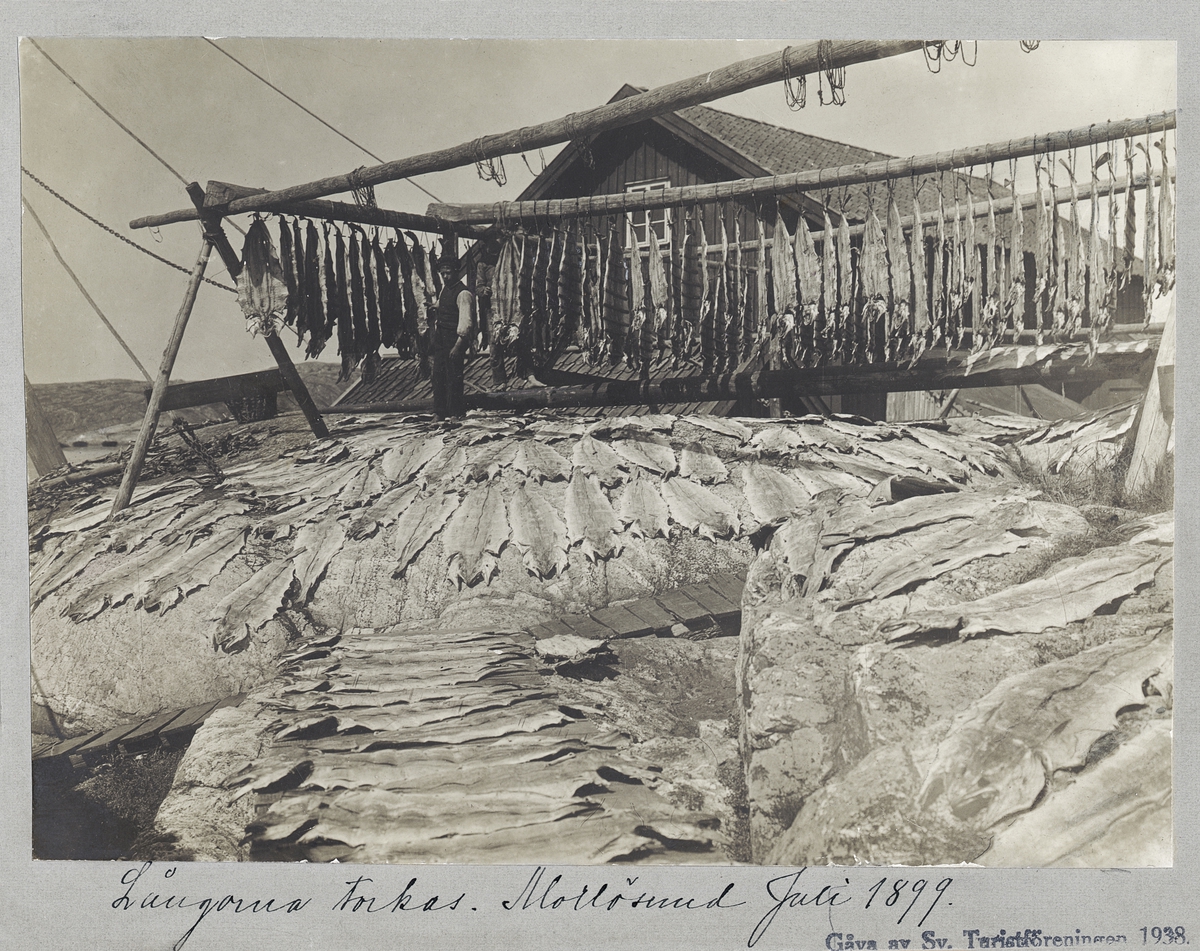 Långorna torkas. Mollösund Juli 1899.
Gåva av Sv. Turistföreningen 1938